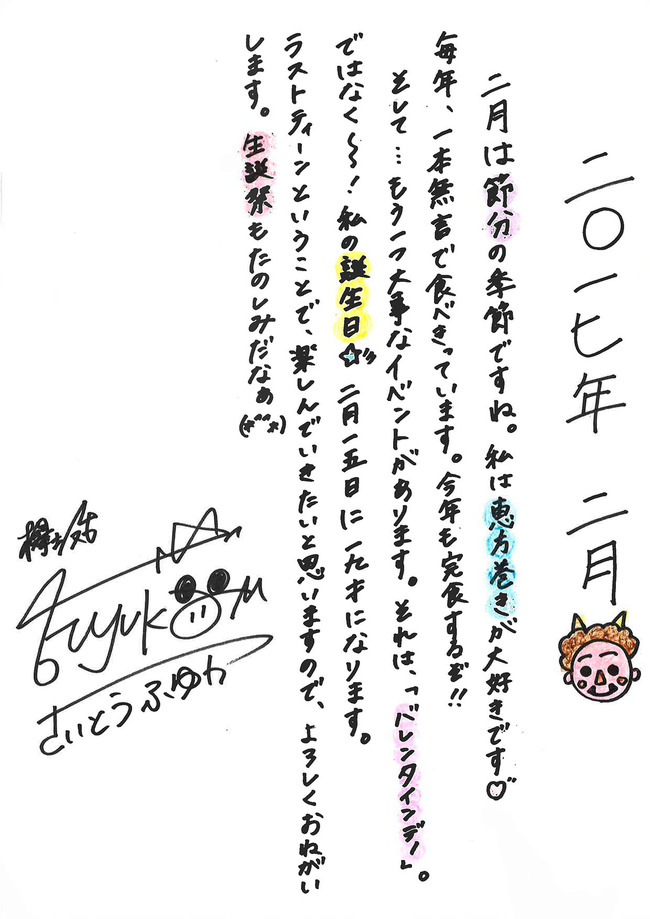 二〇一七年 二月
二月は節分の季節ですね。私は恵方巻きが大好きです♡
毎年、一本無言で食べきっています。今年も完食するぞ!!
そして…もう一つ大事なイベントがあります。それは、「バレンタインデー」。
ではなく〜〜!私の誕生日☆彡 二月一五日に一九才になります。
ラストティーンということで、楽しんでいきたいと思いますので、よろしくおねがい
します。生誕祭もたのしみだなぁ(*^^*)
Fuyuka
さいとうふゆか